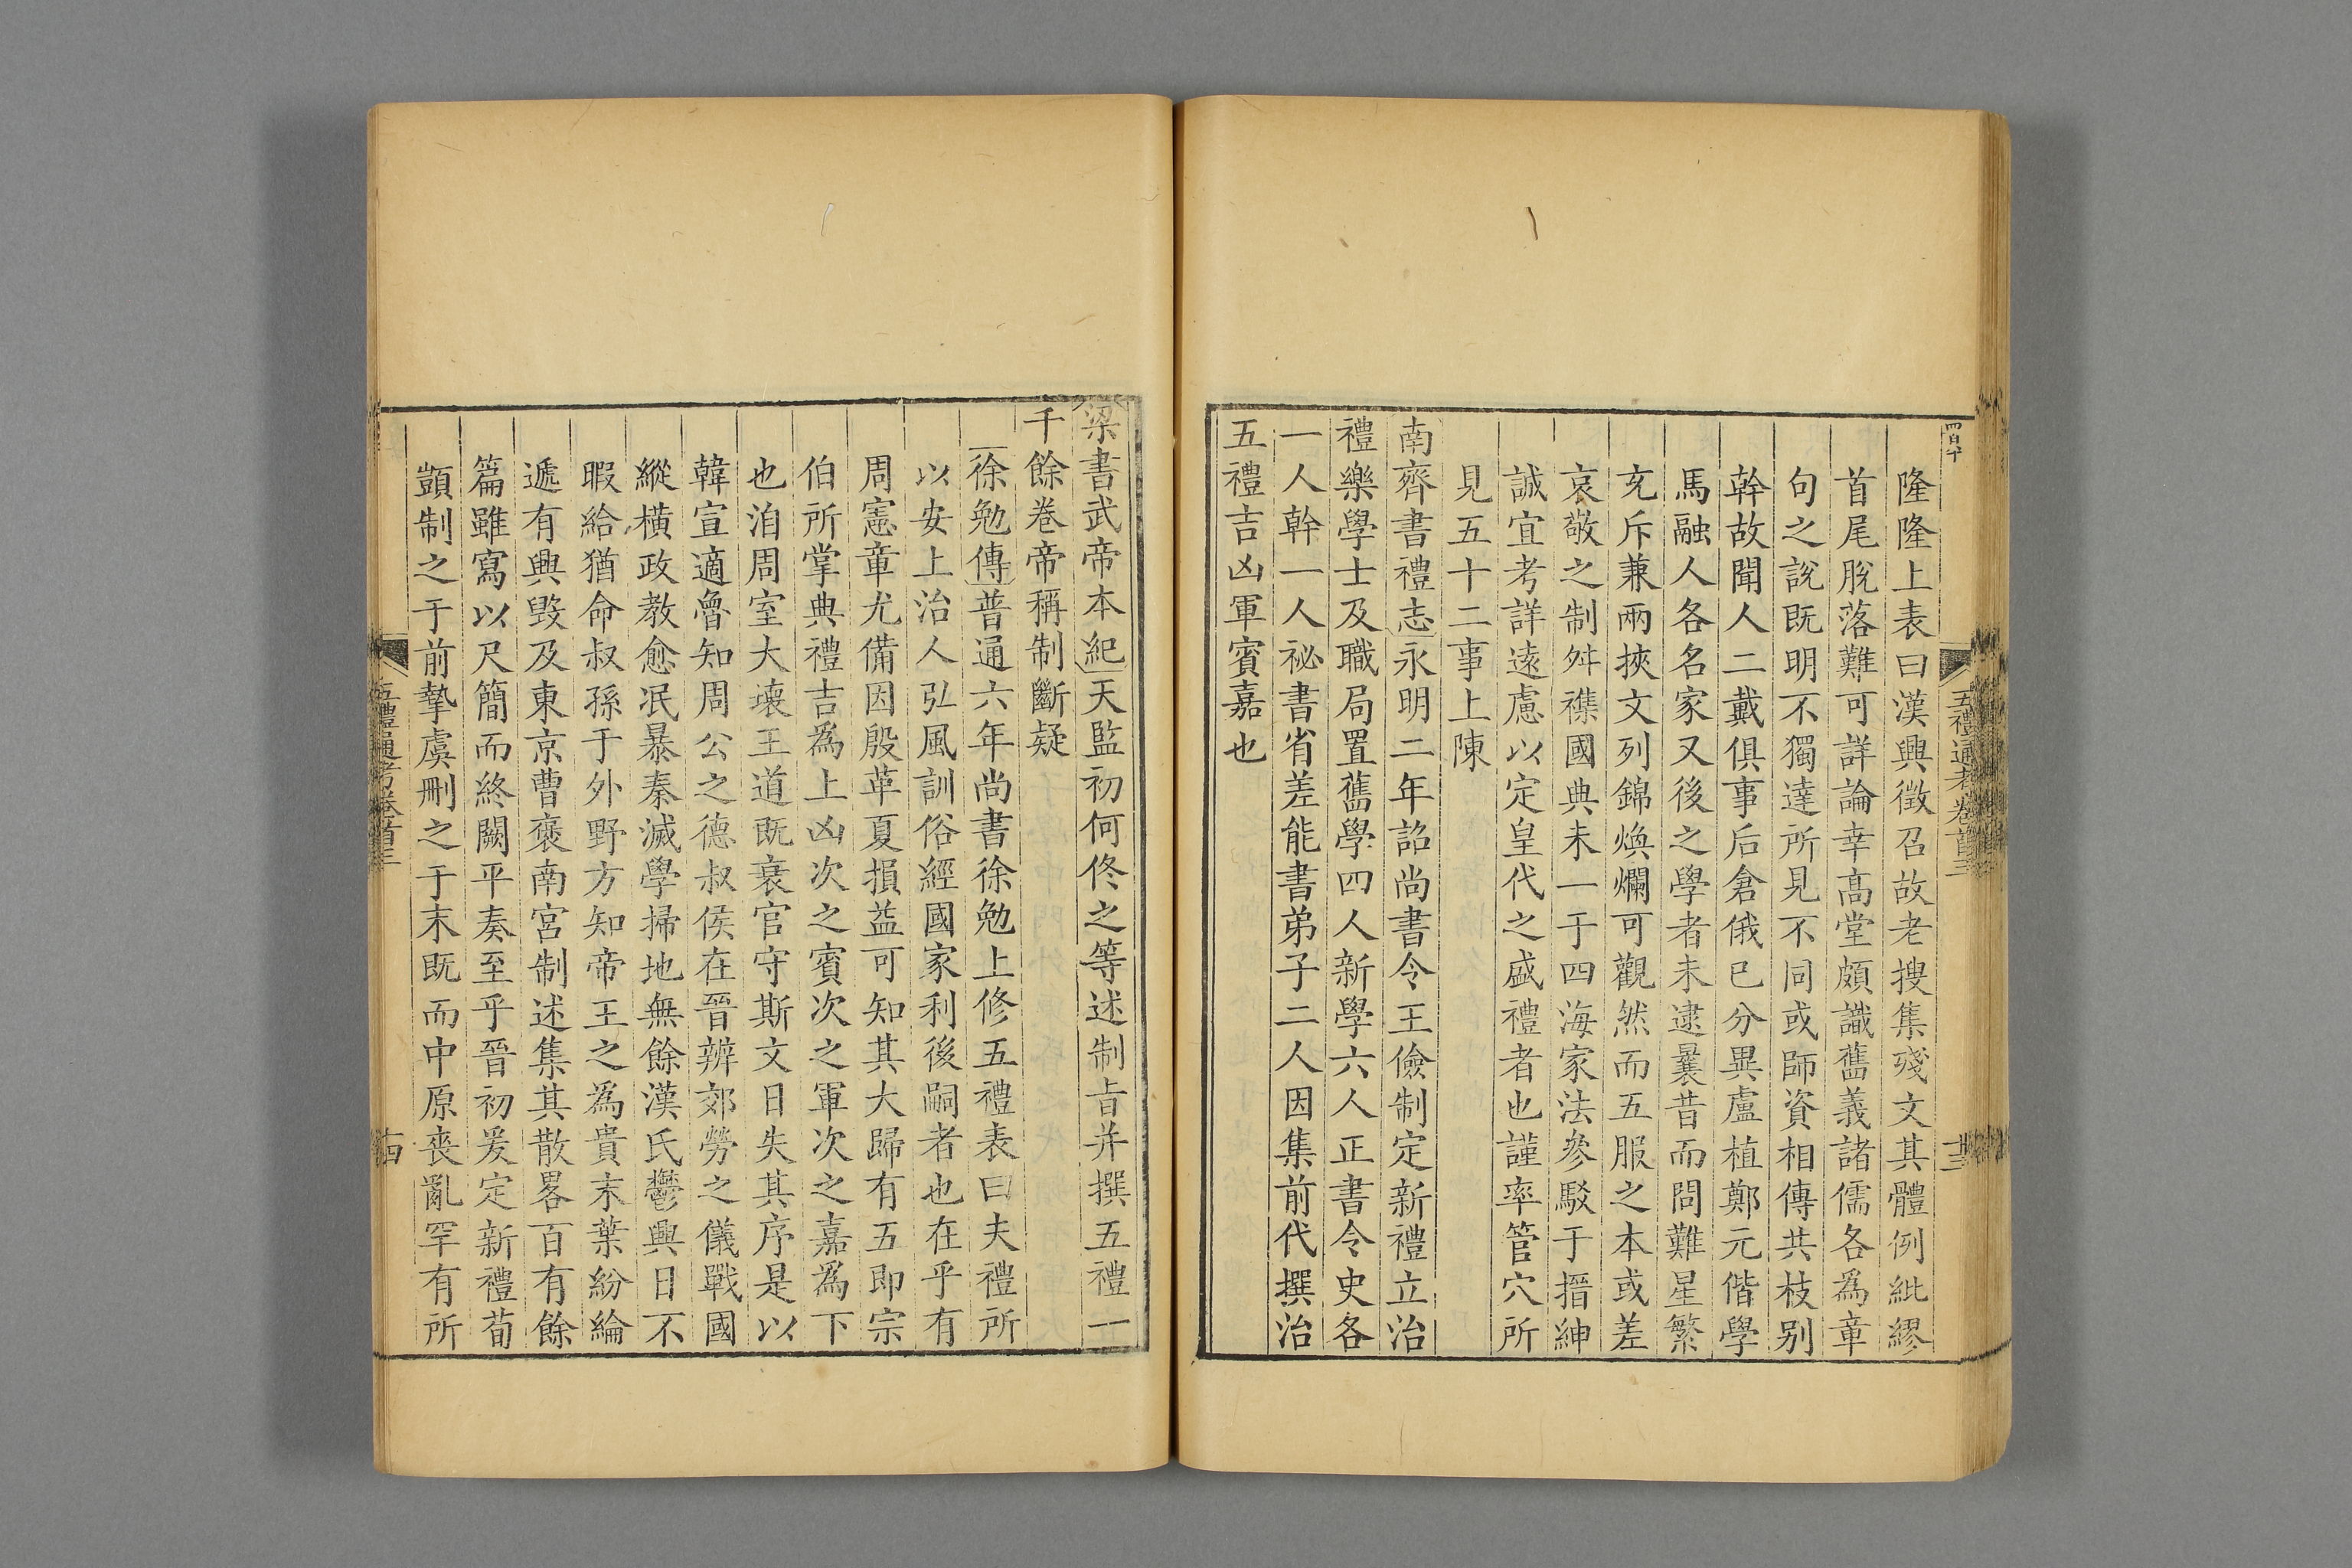 四百十
五禮通考卷首三
十三
隆隆上表曰漢興徴召故老搜集殘文其體例紕繆
首尾脫落難可詳論幸髙堂頗識舊義諸儒各為章
句之說既明不獨達所見不同或師資相傳共枝别
幹故聞人二戴俱事后倉俄已分異盧植鄭元偕學
馬融人各名家又後之學者未逮曩昔而問難星繁
充斥兼兩挾文列錦煥爛可觀然而五服之本或差
哀敬之制舛襍國典未一于四海家法參駁于搢紳
誠宜考詳遠慮以定皇代之盛禮者也謹率管穴所
見五十二事上陳
南齊書禮志永明二年詔尚書令王儉制定新禮立治
禮樂學士及職局置舊學四人新學六人正書令史各
一人幹一人祕書省差能書弟子二人因集前代撰治
五禮吉凶軍賓嘉也
梁書武帝本紀天監初何佟之等述制旨并撰五禮一
千餘卷帝稱制斷疑
徐勉傳普通六年尚書徐勉上修五禮表曰夫禮所
以安上治人弘風訓俗經國家利後嗣者也在乎有
周憲章尤備因殷革夏損益可知其大歸有五即宗
伯所掌典禮吉為上凶次之賓次之軍次之嘉為下
也洎周室大壊王道既衰官守斯文日失其序是以
韓宣適魯知周公之德叔侯在晉辨郊勞之儀戰國
縱橫政教愈泯暴秦滅學掃地無餘漢氏鬱興日不
暇給猶命叔孫于外野方知帝王之為貴末葉紛綸
遞有興毀及東京曹褒南宮制述集其散畧百有餘
篇雖寫以尺簡而終闕平奏至乎晉初爰定新禮荀
顗制之于前摯虞刪之于末既而中原喪亂罕有所
五禮通考卷首三
十四